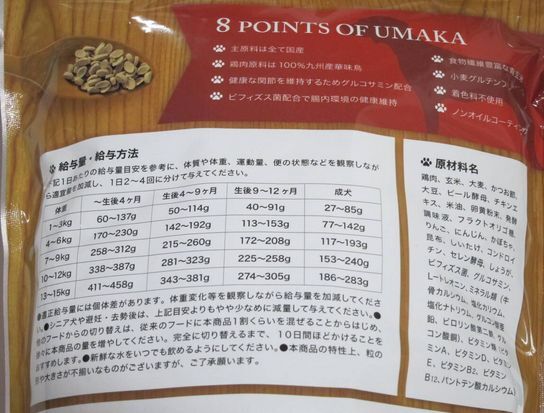 8 POINTS OF UMAKA
主原料は全て国産
鶏肉原料は100%九州産華味鳥
健康な関節を維持するためグルコサミン配合
ビフィズス菌配合で腸内環境の健康維持
食物繊維豊富な
小麦グルテンフ
着色料不使用
ノンオイルコーティング
給与量・給与方法
記1日あたりの給与量目安を参考に、体質や体重、運動量、便の状態などを観察しなが
ら適宜量を加減し、1日2〜4回に分けて与えてください。
体重 〜生後4ヶ月 生後4〜9ヶ月 生後9〜12ヶ月 成犬
1〜3kg 60〜137g 50〜114g 40〜91g 27〜85g
4〜6kg 170〜230g 142〜192g 113〜153g 77〜142g
7〜9kg 258〜312g 215〜260g 172〜208g 117〜193g
10〜12kg 338〜387g 281〜323g 225〜258g 153〜240g
13〜15kg 411〜458g 343〜381g 274〜305g 186〜283g
●適正給与量には個体差があります。体重変化等を観察しながら給与量を加減してくださ
い。●シニア犬や避妊・去勢後は、上記目安よりもやや少なめに減量して与えてください。●
他のフードからの切り替えは、従来のフードに本商品1割くらいを混ぜることからはじめ、
徐々に本商品の量を増やしてください。完全に切り替えるまで、10日間ほどかけることを
おすすめします。●新鮮な水をいつでも飲めるようにしてください。●本商品の特性上、粒の
形や大きさが不揃いなものがございますが、ご了承願います。
原材料名
鶏肉、玄米、大麦、かつお節、
大豆、ビール酵母、チキンエ
キス、米油、卵黄粉末、発酵
調味液、フラクトオリゴ糖、
りんご、にんじん、かぼちゃ、
昆布、しいたけ、コンドロイ
チン、セレン酵母、しょうが、
ビフィズス菌、グルコサミン、
L-トレオニン、ミネラル類(牛
骨カルシウム、塩化カリウム、
塩化ナトリウム、グルコン酸亜
鉛、ピロリン酸第二鉄、グル
コン酸銅)、ビタミン類(ビタ
ミンA、ビタミンD、ビタミン
E、ビタミンB2、ビタミン
B12、パントテン酸カルシウム)